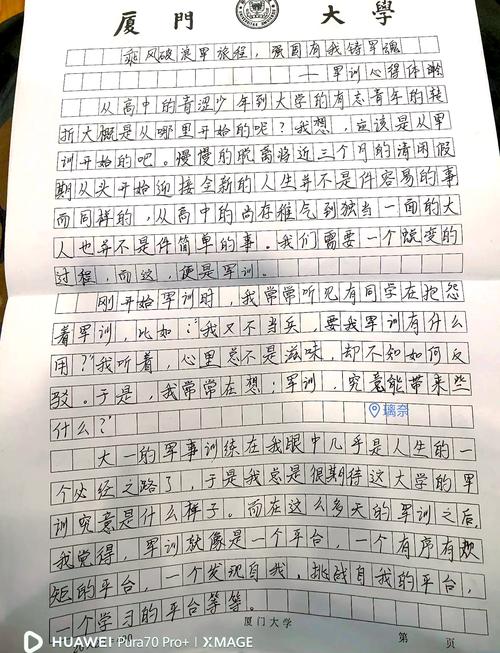 厦門大學
乘风破浪军旅程，强国有我铸军魂
——军训心得体会
从高中的青涩少年到大学的有志青年的转
折大概是从哪里开始的呢？我想，应该是从军
训开始的吧。慢慢的脱离将近三个月的清闲假
期从头开始迎接全新的人生并不是件容易的事
而同样的，从高中的尚存稚气到独当一面的大
人也并不是件简单的事。我们需要一个蜕变的
过程，而这，便是军训。
刚开始军训时，我常常听见有同学在抱怨
着军训，比如：“我又不当兵，要我军训有什么
用？”我听着，心里总不是滋味，却不知如何反
驳。于是，我常常在想：军训，究竟能带来些
什么？”
璃奈
大一的军事训练在我眼中几乎是人生的一
个必经之路了，于是我总是很期待这大学的军
训究竟是什么样子。而在这么多天的军训之后，
我觉得，军训就像是一个平台，一个有序有规
矩的平台，一个发现自我，挑战自我的平台，
一个学习的平台等等。
厦门大学
第 页
HUAWEI Pura70 Pro+ | XMAGE